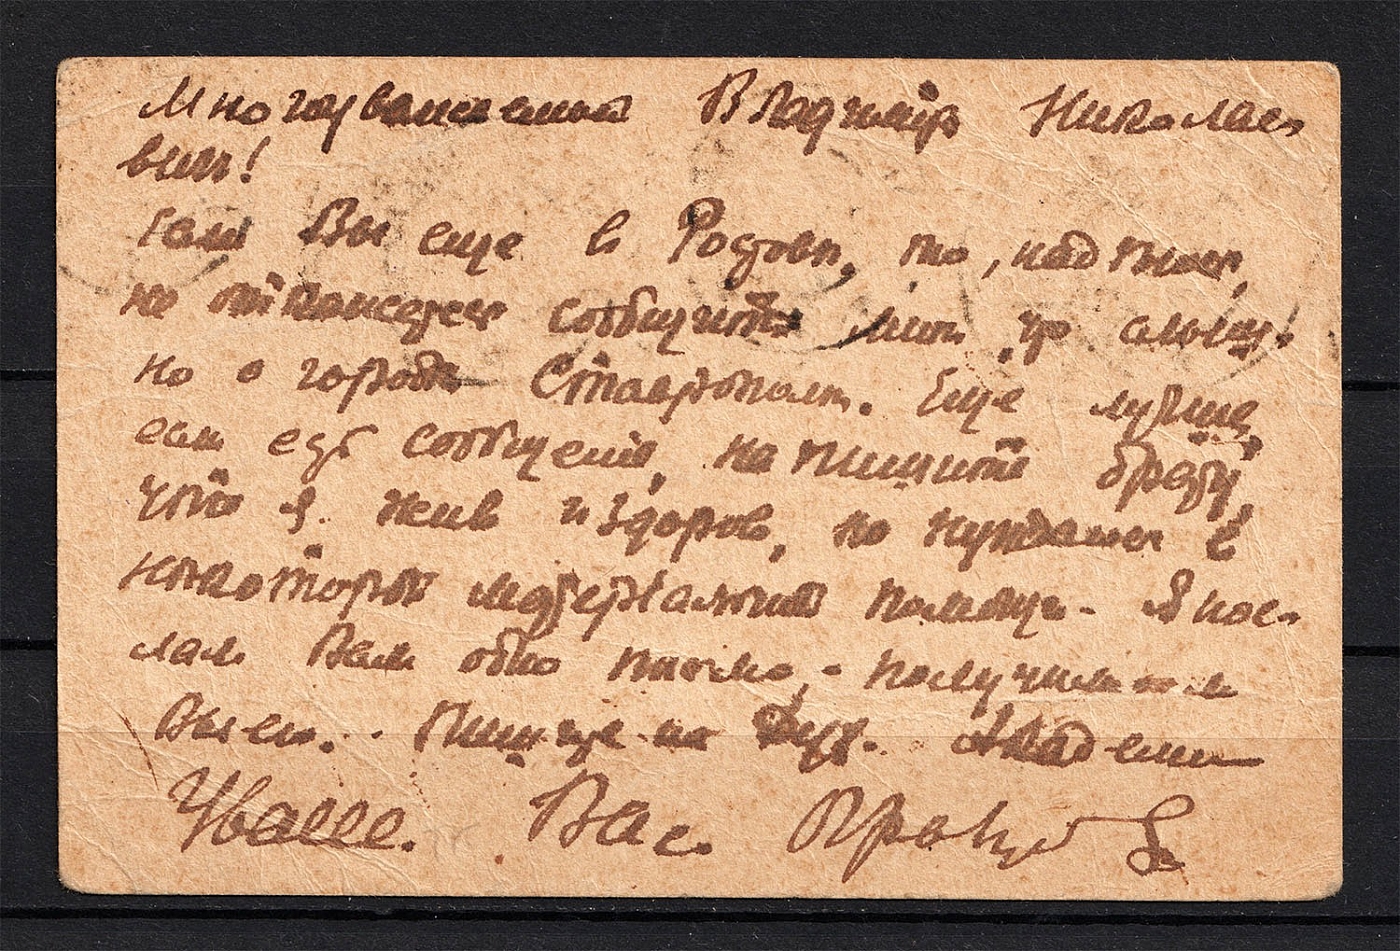 Многоуважаемый Владимир Николае
вич!
Если Вы еще в Ростове, то, надеюсь,
не откажетесь сообщить мне что либудь
но о городе Ставрополе. Еще лучше,
если есть сообщение, напишите брату,
что я жив и здоров, но нуждаюсь в
некоторой матерiальной помощи. Я пос
лал Вам одно письмо, - получили ли
Вы его. Пишите на Дух. Академию
Уваж. Вас